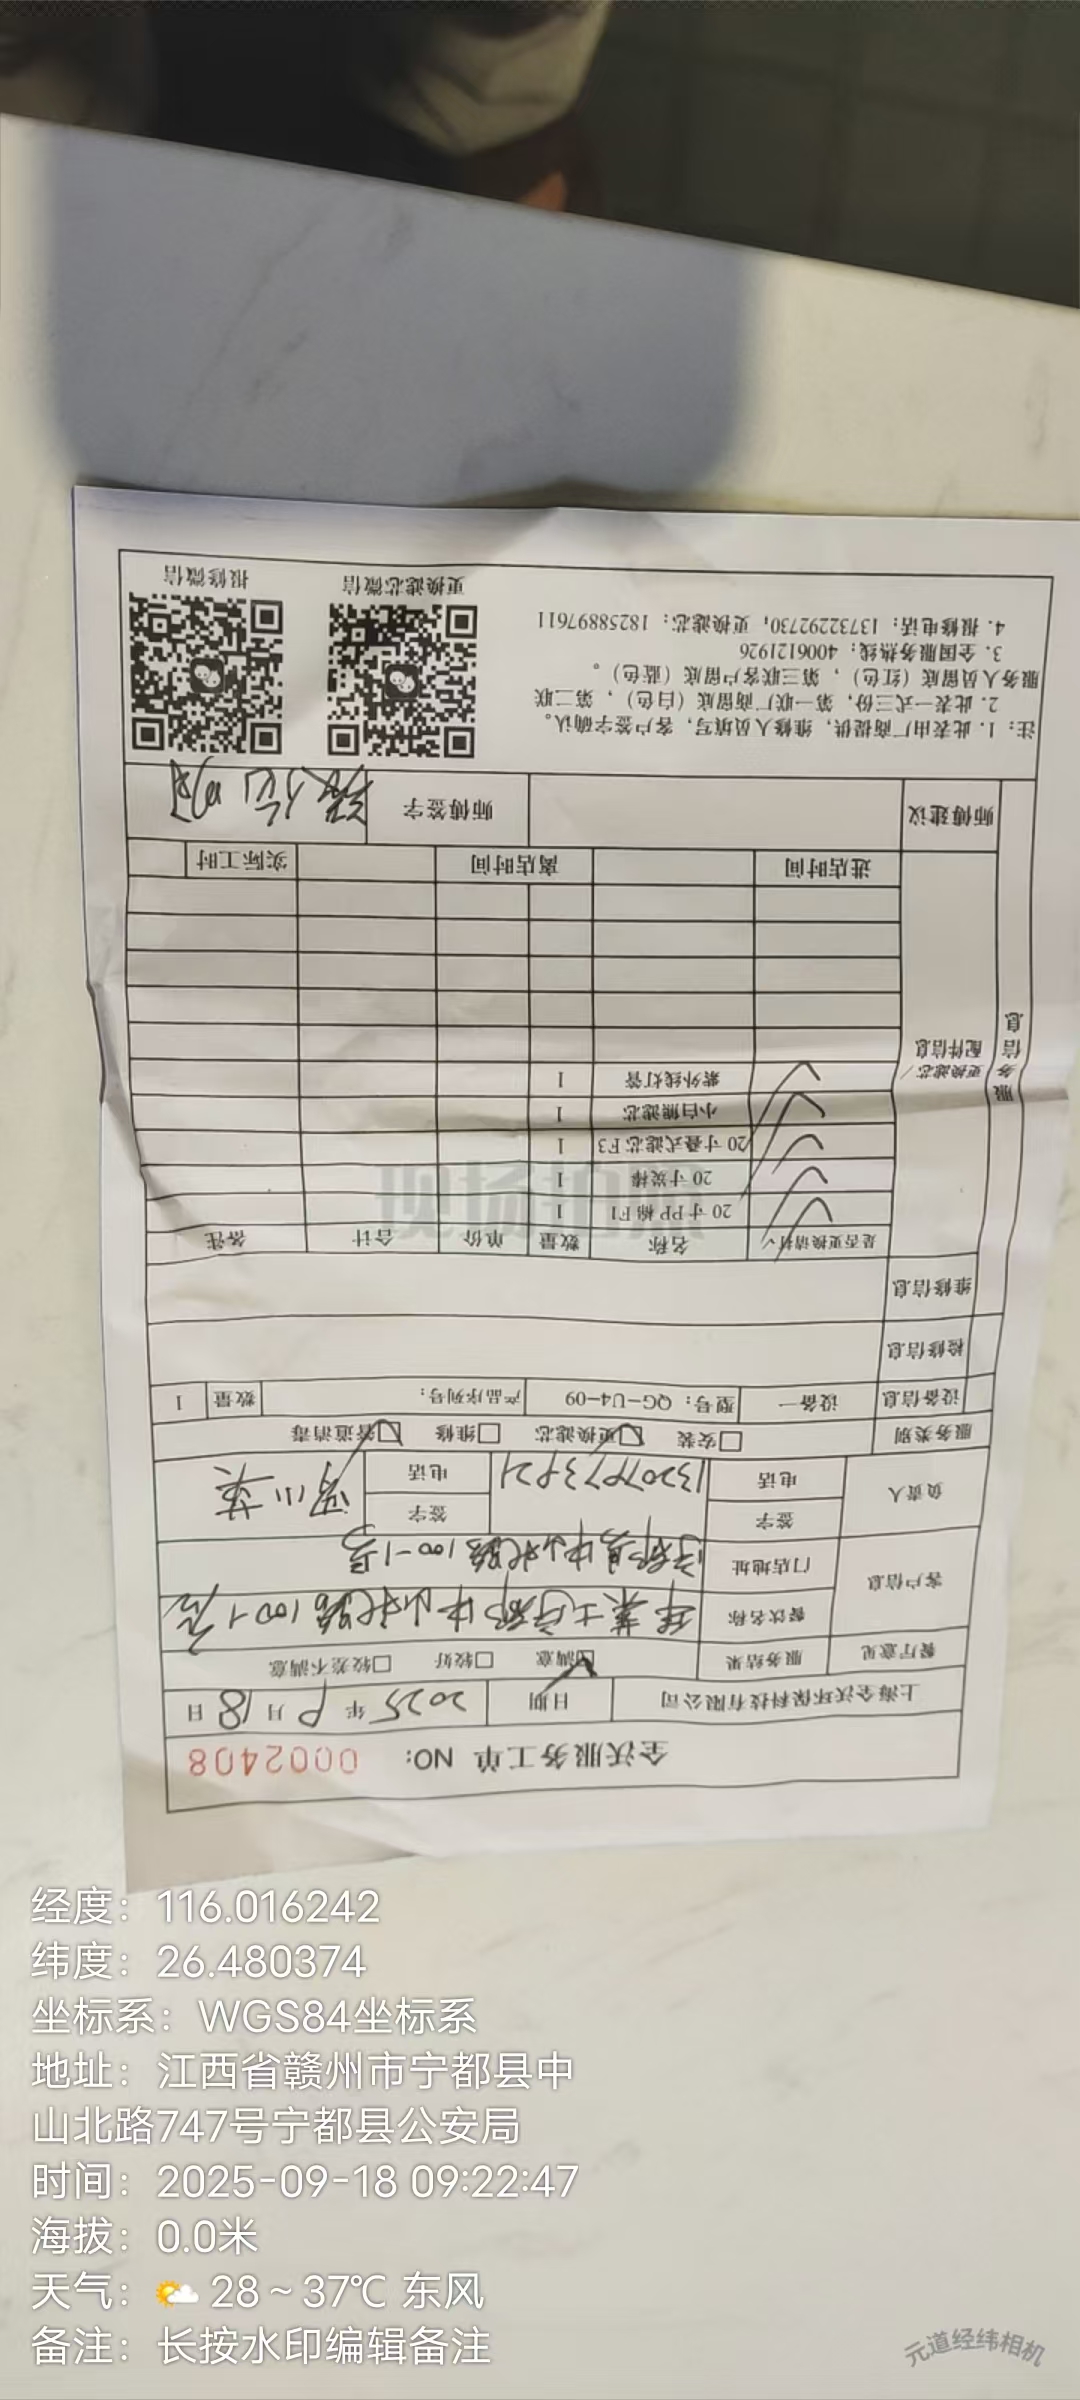 全沃服务工单 NO: 0002408
上海全沃环保科技有限公司 日期 2025年9月18日
餐厅意见 服务结果 ☑满意 □较好 □较差不满意
客户信息 餐饮名称 华莱士宁都中山北路100-1店
门店地址 宁都县中山北路100-1号
负责人 签字 签字
电话 13207973921 电话
服务类别 □安装 ☑更换滤芯 □维修 ☑管道消毒
设备信息 设备一 型号: QG-U4-09 产品序列号: 数量 1
检修信息
维修信息
服务信息
更换滤芯/配件信息
是否更换请打✓ 名称 数量 单价 合计 备注
✓ 20寸PP棉F1 1
✓ 20寸炭棒 1
✓ 20寸叠式滤芯F3 1
✓ 小白熊滤芯 1
✓ 紫外线灯管 1
进店时间 离店时间 实际工时
师傅建议 师傅签字
注: 1. 此表由厂商提供, 维修人员填写, 客户签字确认。
2. 此表一式三份, 第一联厂商留底（白色）, 第二联
服务人员留底（红色）, 第三联客户留底（蓝色）。
3. 全国服务热线: 4006121926
4. 报修电话: 13732292730; 更换滤芯: 18258897611
更换滤芯微信 报修微信
现场拍照
经度: 116.016242
纬度: 26.480374
坐标系: WGS84坐标系
地址: 江西省赣州市宁都县中
山北路747号宁都县公安局
时间: 2025-09-18 09:22:47
海拔: 0.0米
天气: 28~37℃ 东风
备注: 长按水印编辑备注
元道经纬相机